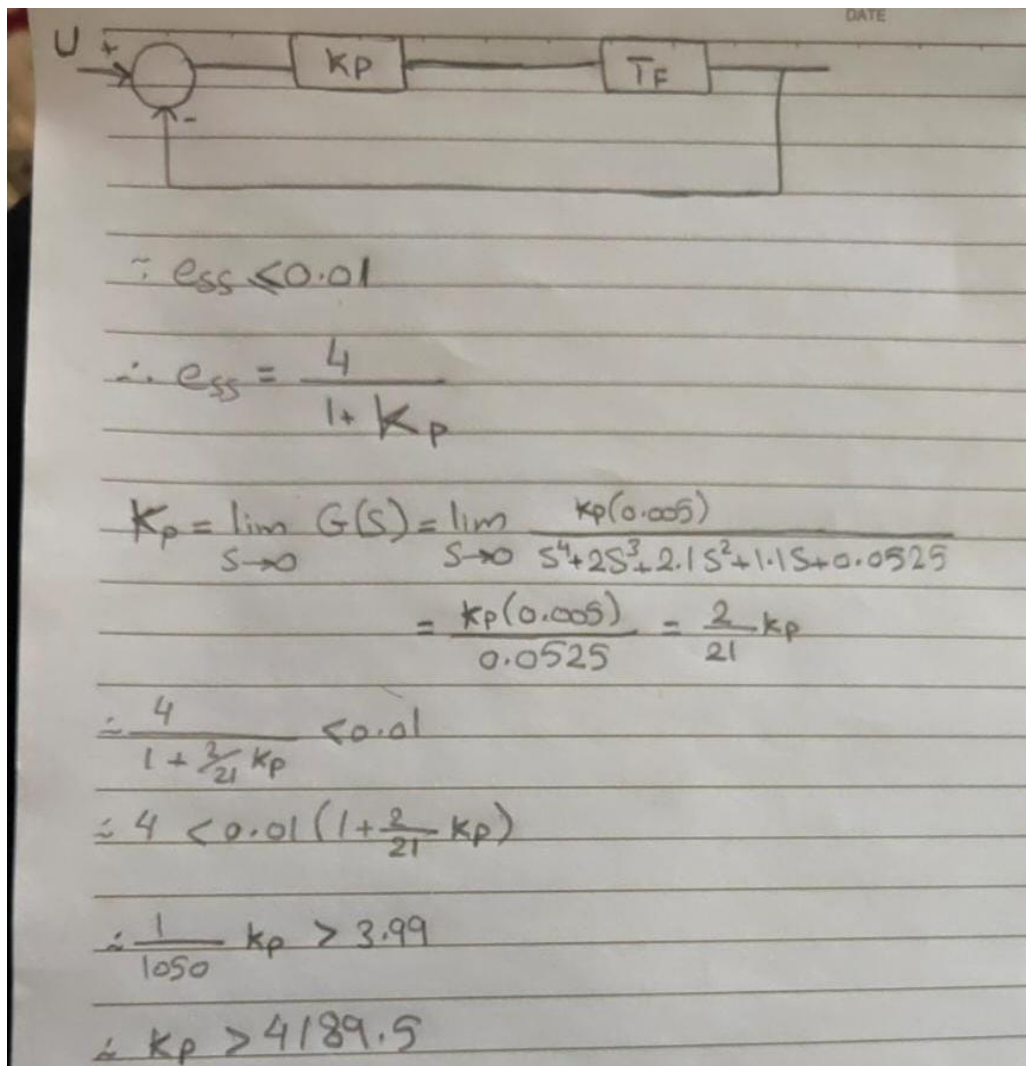 DATE
U + KP TF
-
∵ ess ≤0.01
∴ ess = 4 / 1+ Kp
Kp = lim S→0 G(S) = lim S→0 kp(0.005) / S⁴+2S³+2.1S²+1.1S+0.0525
= kp(0.005) / 0.0525 = 2/21 kp
∴ 4 / 1 + 2/21 kp <0.01
∴ 4 <0.01(1+ 2/21 kp)
∴ 1/1050 kp > 3.99
∴ kp >4189.5